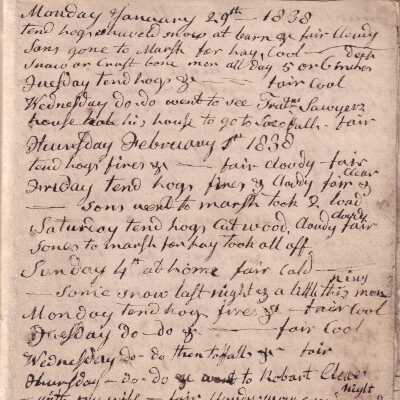 Monday January 29th 1838
tend hogs shoveld snow at barn & fair cloudy
Sons gone to Marsh for hay Cool
snow or Crust bore men all day 5 or 6 inches deep
Tuesday tend hogs & fair Cool
Wednesday do do went to see Sawyers
house his house to go to falls fair
Thursday February 1st 1838
tend hogs fires & fair cloudy fair
Friday tend hogs fires & cloddy fair & Clear
sons went to marsh took 2 load
Saturday tend hogs Cut wood, Cloudy fair cloudy
Sones to marsh for hay took all off
Sunday 4th at home fair Cald
Some snow last night & a little this mor ning
Monday tend hogs fires & fair Cool
Tuesday do do & fair Cool
Wednesday do do then to falls & fair
Thursday do do & went to Robart
with my wife fair night